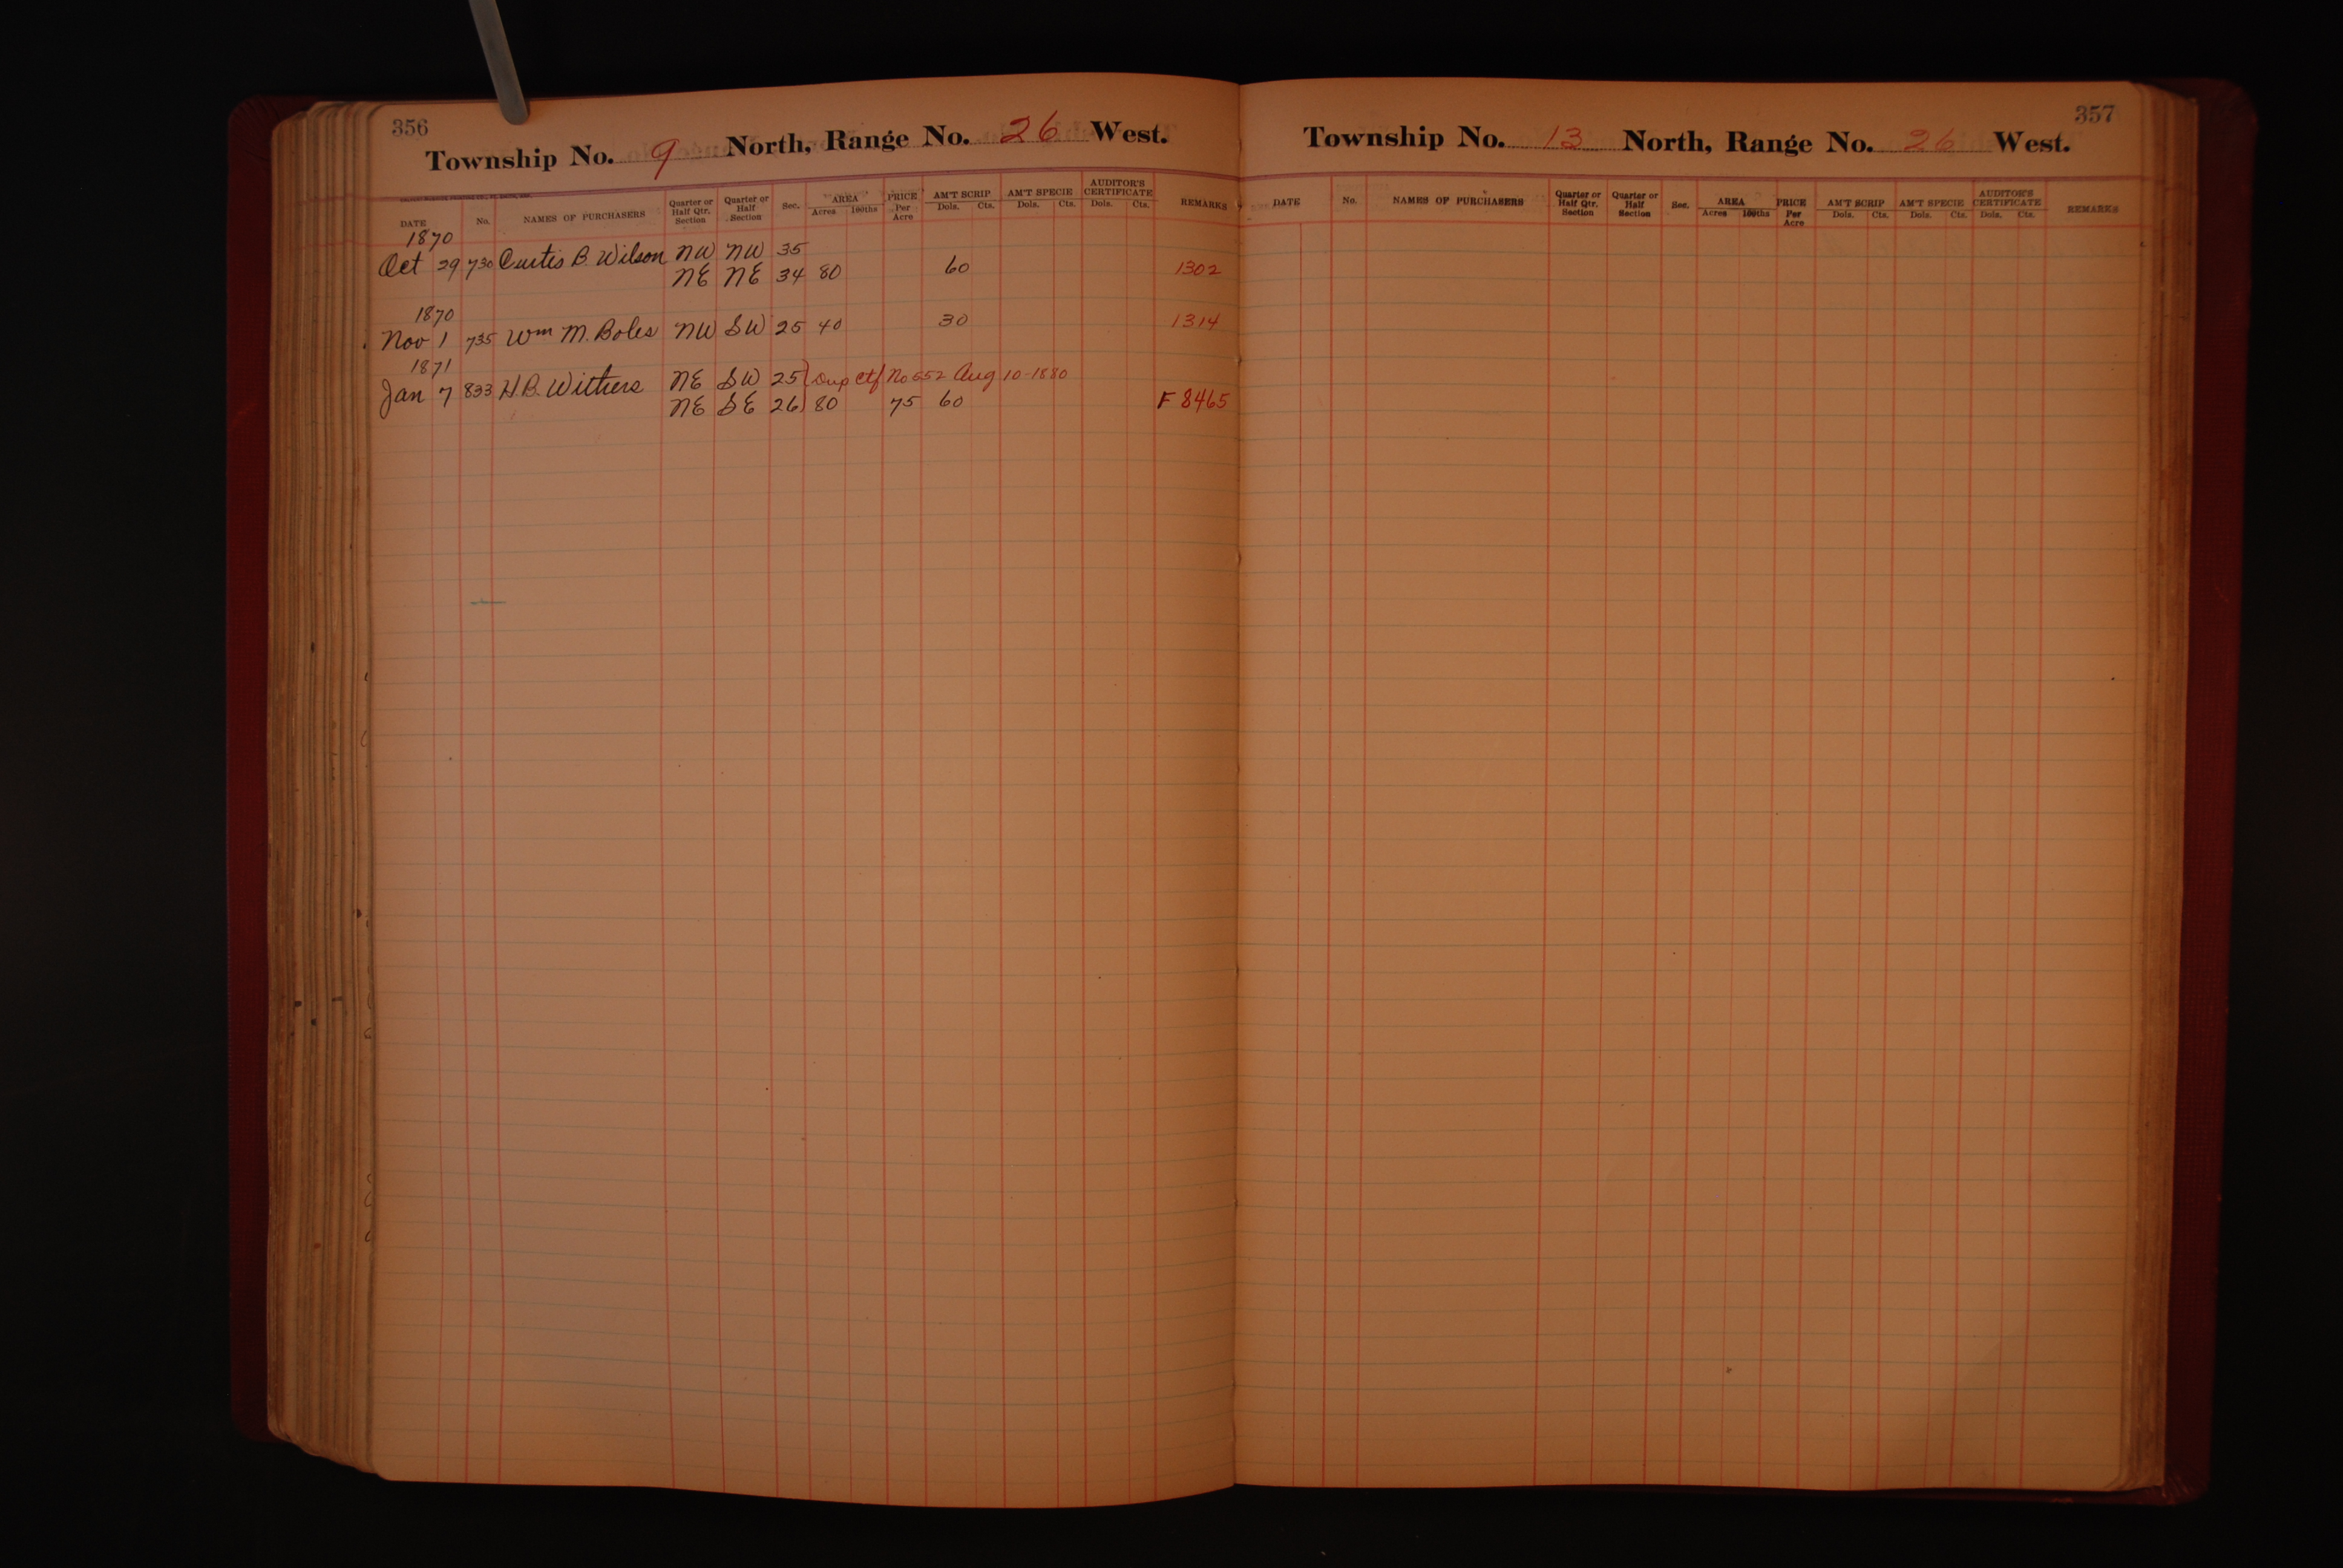 356
Township No. 9 North, Range No. 26 West.
DATE No. NAMES OF PURCHASERS Quarter or Half Qtr. Section Quarter or Half Section Sec. AREA Acres 100ths PRICE Per Acre AM'T SCRIP Dols. Cts. AM'T SPECIE Dols. Cts. AUDITOR'S CERTIFICATE Dols. Cts. REMARKS
1870
Oct 29 730 Curtis B. Wilson NW NW 35
NE NE 34 80 60 1302
1870
Nov 1 735 Wm M. Boles NW SW 25 40 30 1314
1871
Jan 7 833 H.B. Withers NE SW 25 Dup Ctf No 552 Aug 10-1880
NE SE 26 80 75 60 F 8465
357
Township No. 13 North, Range No. 26 West.
DATE No. NAMES OF PURCHASERS Quarter or Half Qtr. Section Quarter or Half Section Sec. AREA Acres 100ths PRICE Per Acre AM'T SCRIP Dols. Cts. AM'T SPECIE Dols. Cts. AUDITOR'S CERTIFICATE Dols. Cts. REMARKS